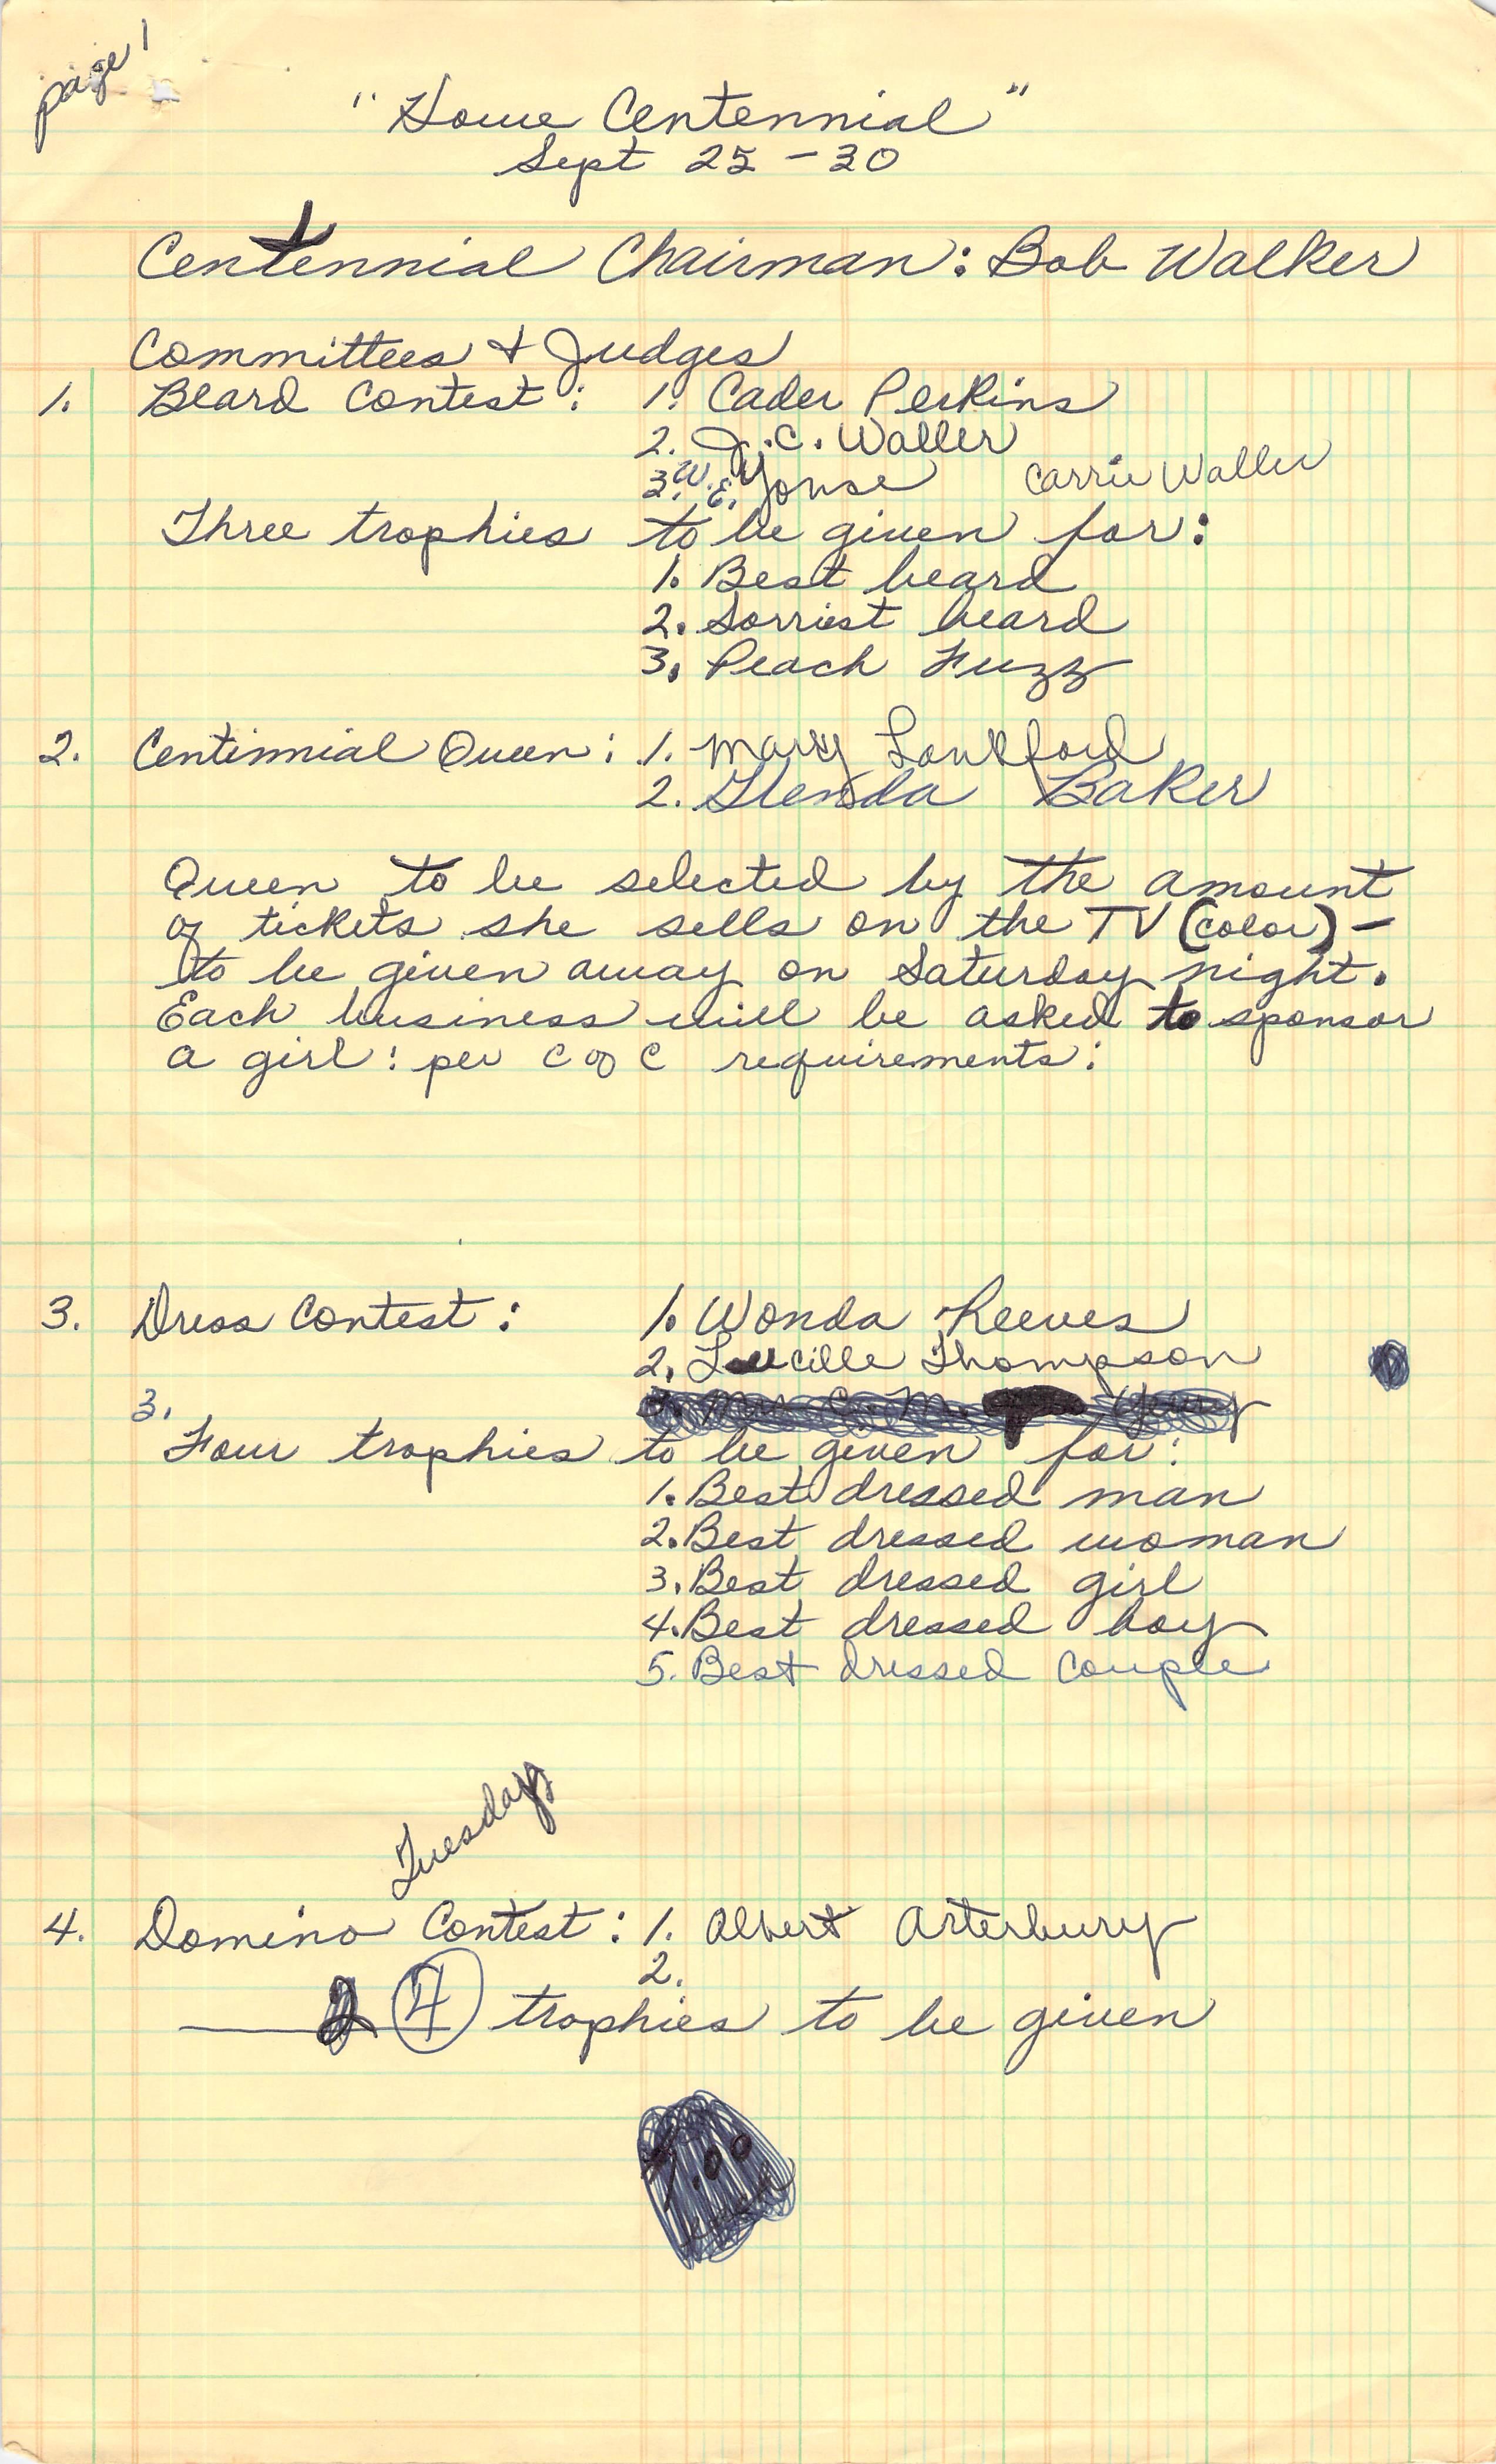 page 1
"Howe Centennial"
Sept 25 - 30
Centennial Chairman: Bob Walker
Committees + Judges
1. Beard Contest: 1. Cader Perkins
2. J.C. Waller
3. W.E. Youse Carrie Waller
Three trophies to be given for:
1. Best beard
2. Sorriest beard
3. Peach Fuzz
2. Centinnial Queen: 1. Mary Lankford
2. Glenda Baker
Queen to be selected by the amount
of tickets she sells on the TV (color) -
to be given away on Saturday night.
Each business will be asked to sponsor
a girl: per C of C requirements:
3. Dress Contest: 1. Wonda Reeves
2. Lucille Thompson
3. Mrs C. M.
3.
Four trophies to be given for:
1. Best dressed man
2. Best dressed woman
3. Best dressed girl
4. Best dressed boy
5. Best dressed couple
Tuesday
4. Domino Contest: 1. Albert Arterbury
2.
2 4 trophies to be given
7:00